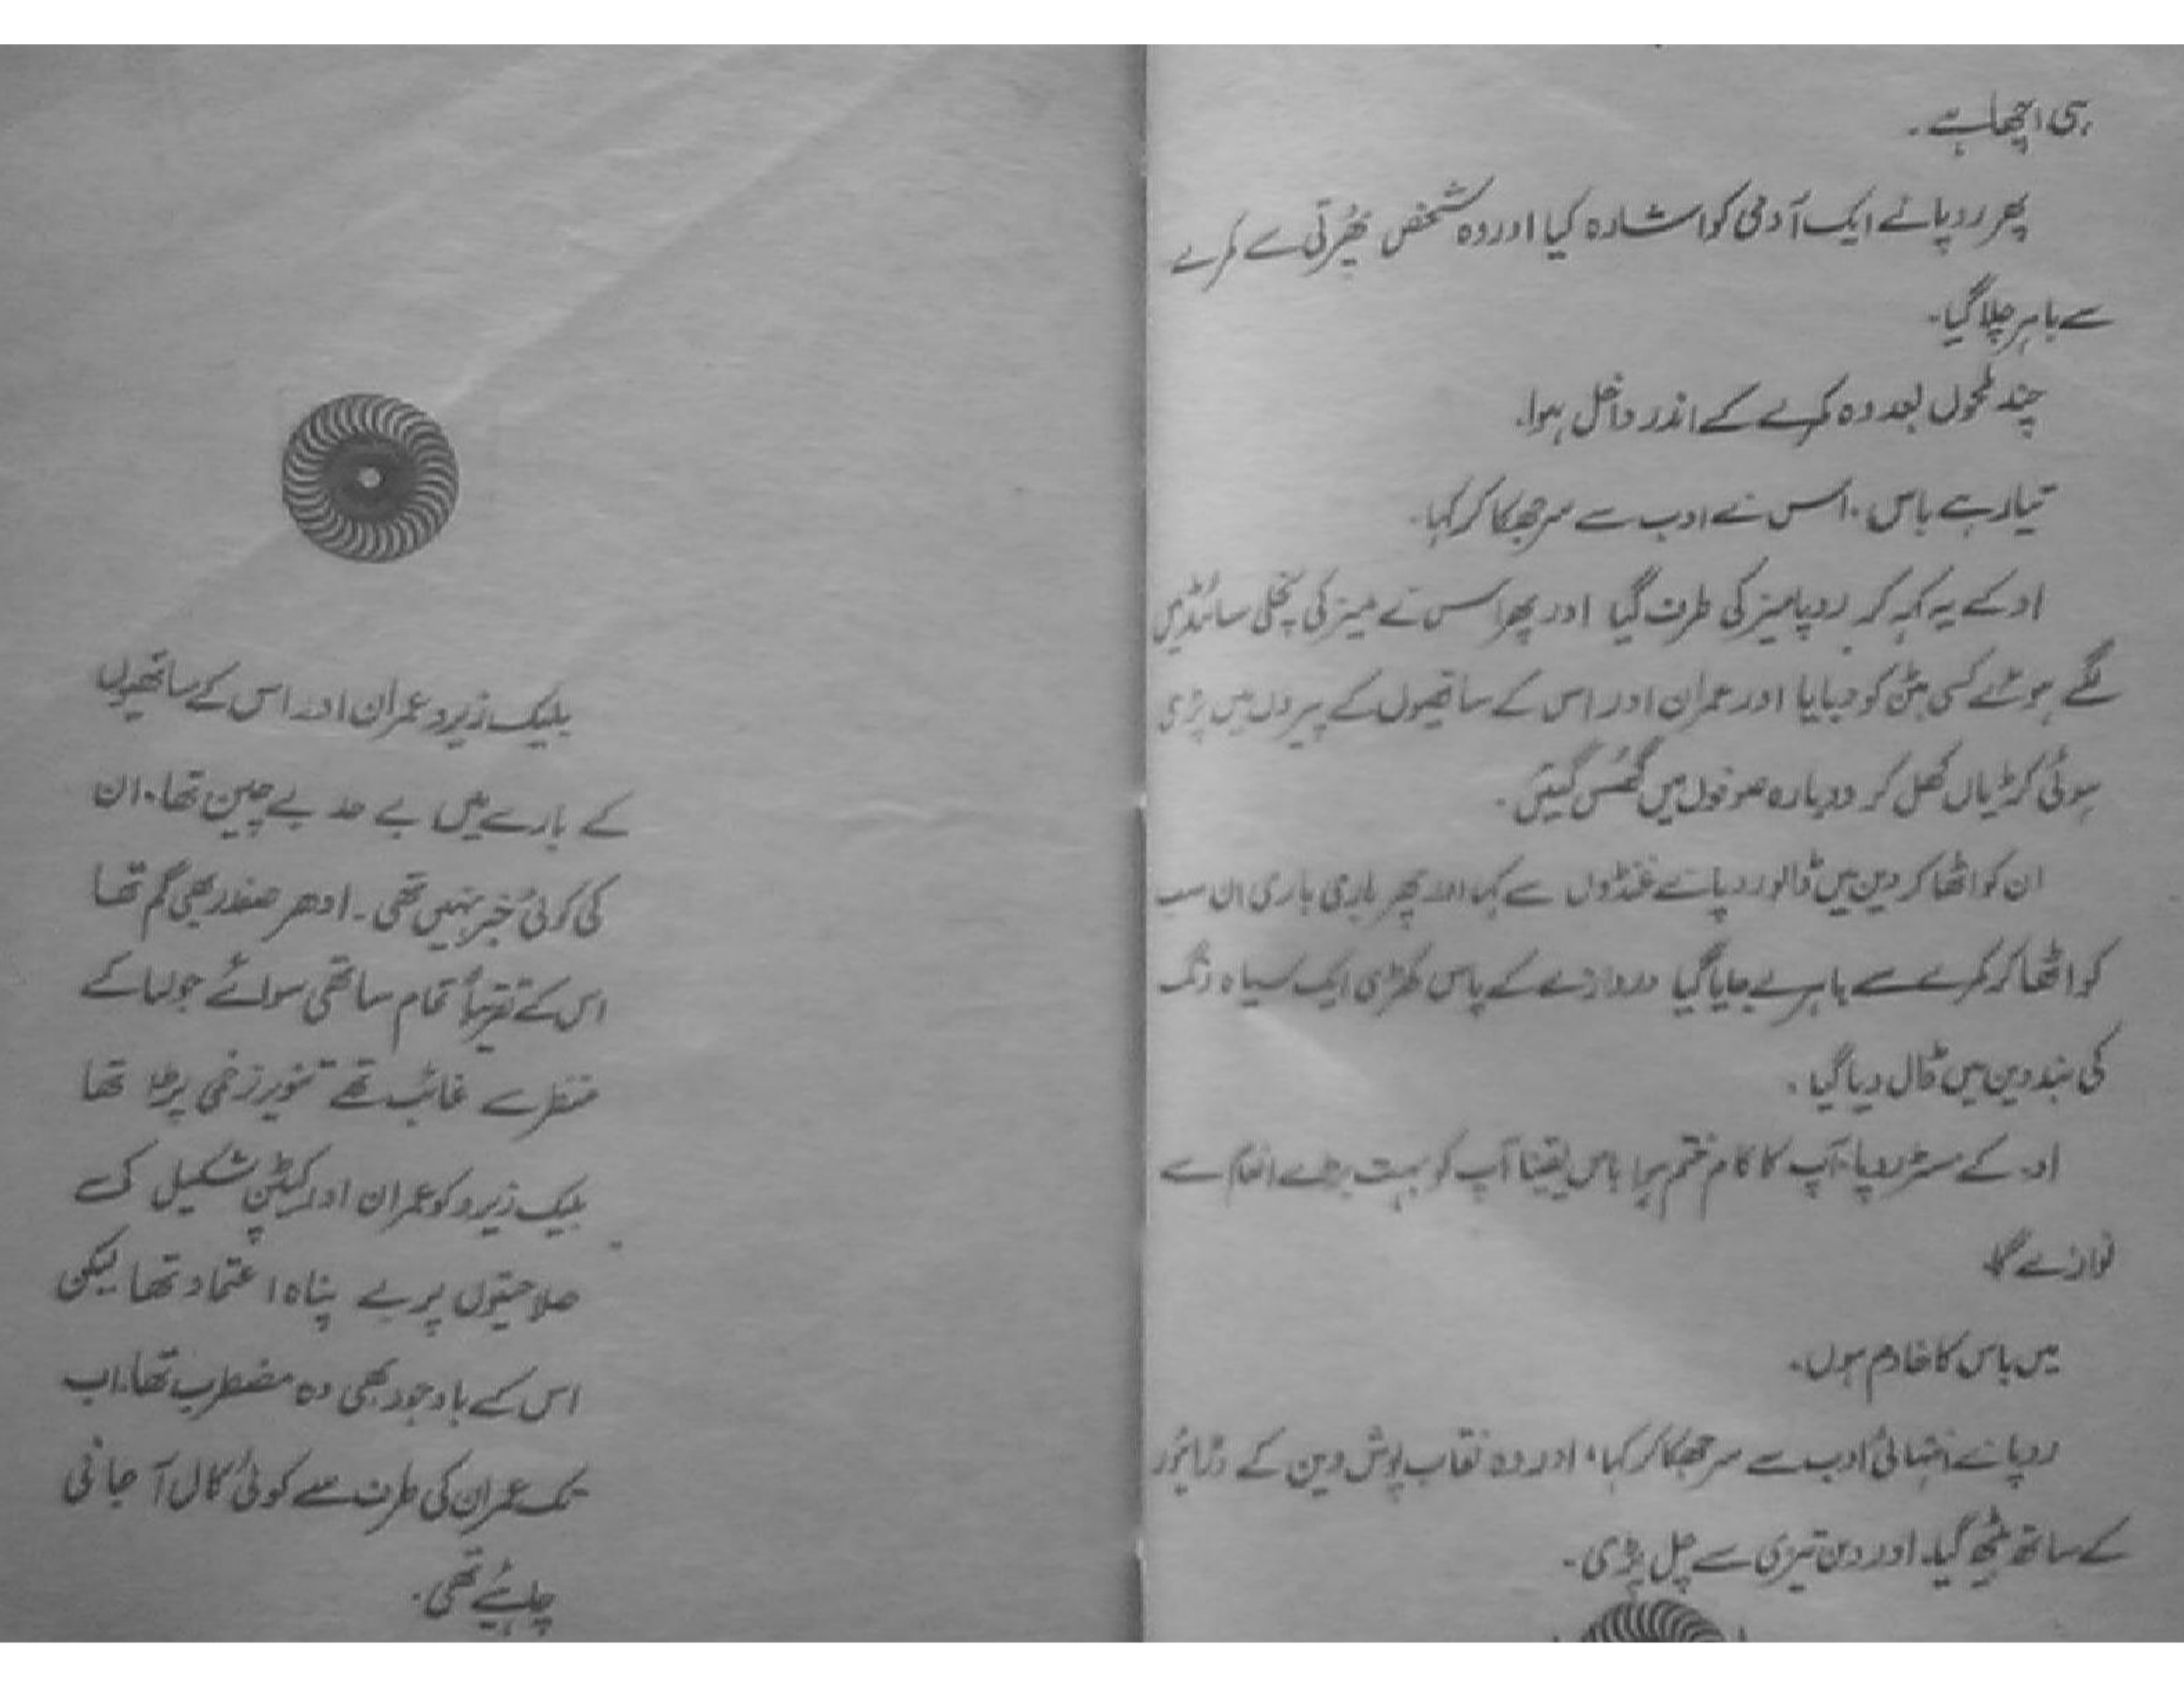 ہی اچھا ہے۔
پھر روپا نے ایک آدمی کو اشارہ کیا اور وہ شخص پھرتی سے کمرے
سے باہر چلا گیا۔
چند لمحوں بعد وہ کمرے کے اندر داخل ہوا۔
تیار ہے باس۔ اس نے ادب سے سر جھکا کر کہا۔
اوکے یہ کہہ کر روپا میز کی طرف گیا اور پھر اس نے میز کی پچھلی سائیڈ میں
لگے ہوئے کسی بٹن کو دبایا اور عمران اور اس کے ساتھیوں کے پیروں میں پڑی
ہوئی کڑیاں کھل کر دوبارہ صوفوں میں گھس گئیں۔
ان کو اٹھا کر وین میں ڈالو روپا نے غنڈوں سے کہا اور پھر باری باری ان سب
کو اٹھا کر کمرے سے باہر لے جایا گیا دروازے کے پاس کھڑی ایک سیاہ رنگ
کی بند وین میں ڈال دیا گیا۔
او۔ کے مسٹر روپا آپ کا کام ختم ہوا باس یقیناً آپ کو بہت بڑے انعام سے
نوازے گا
میں باس کا خادم ہوں۔
روپا نے انتہائی ادب سے سر جھکا کر کہا، اور وہ نقاب پوش وین کے ڈرائیور
کے ساتھ بیٹھ گیا اور وین تیزی سے چل پڑی۔
بلیک زیرو عمران اور اس کے ساتھیوں
کے بارے میں بے حد بے چین تھا۔ ان
کی کوئی خبر نہیں تھی۔ ادھر صفدر بھی گم تھا
اس کے تقریباً تمام ساتھی سوائے جولیا کے
منظر سے غائب تھے تنویر زخمی پڑا تھا
بلیک زیرو کو عمران اور کیپٹن شکیل کی
صلاحیتوں پر بے پناہ اعتماد تھا لیکن
اس کے باوجود بھی وہ مضطرب تھا۔ اب
تک عمران کی طرف سے کوئی کال آ جانی
چاہیئے تھی۔